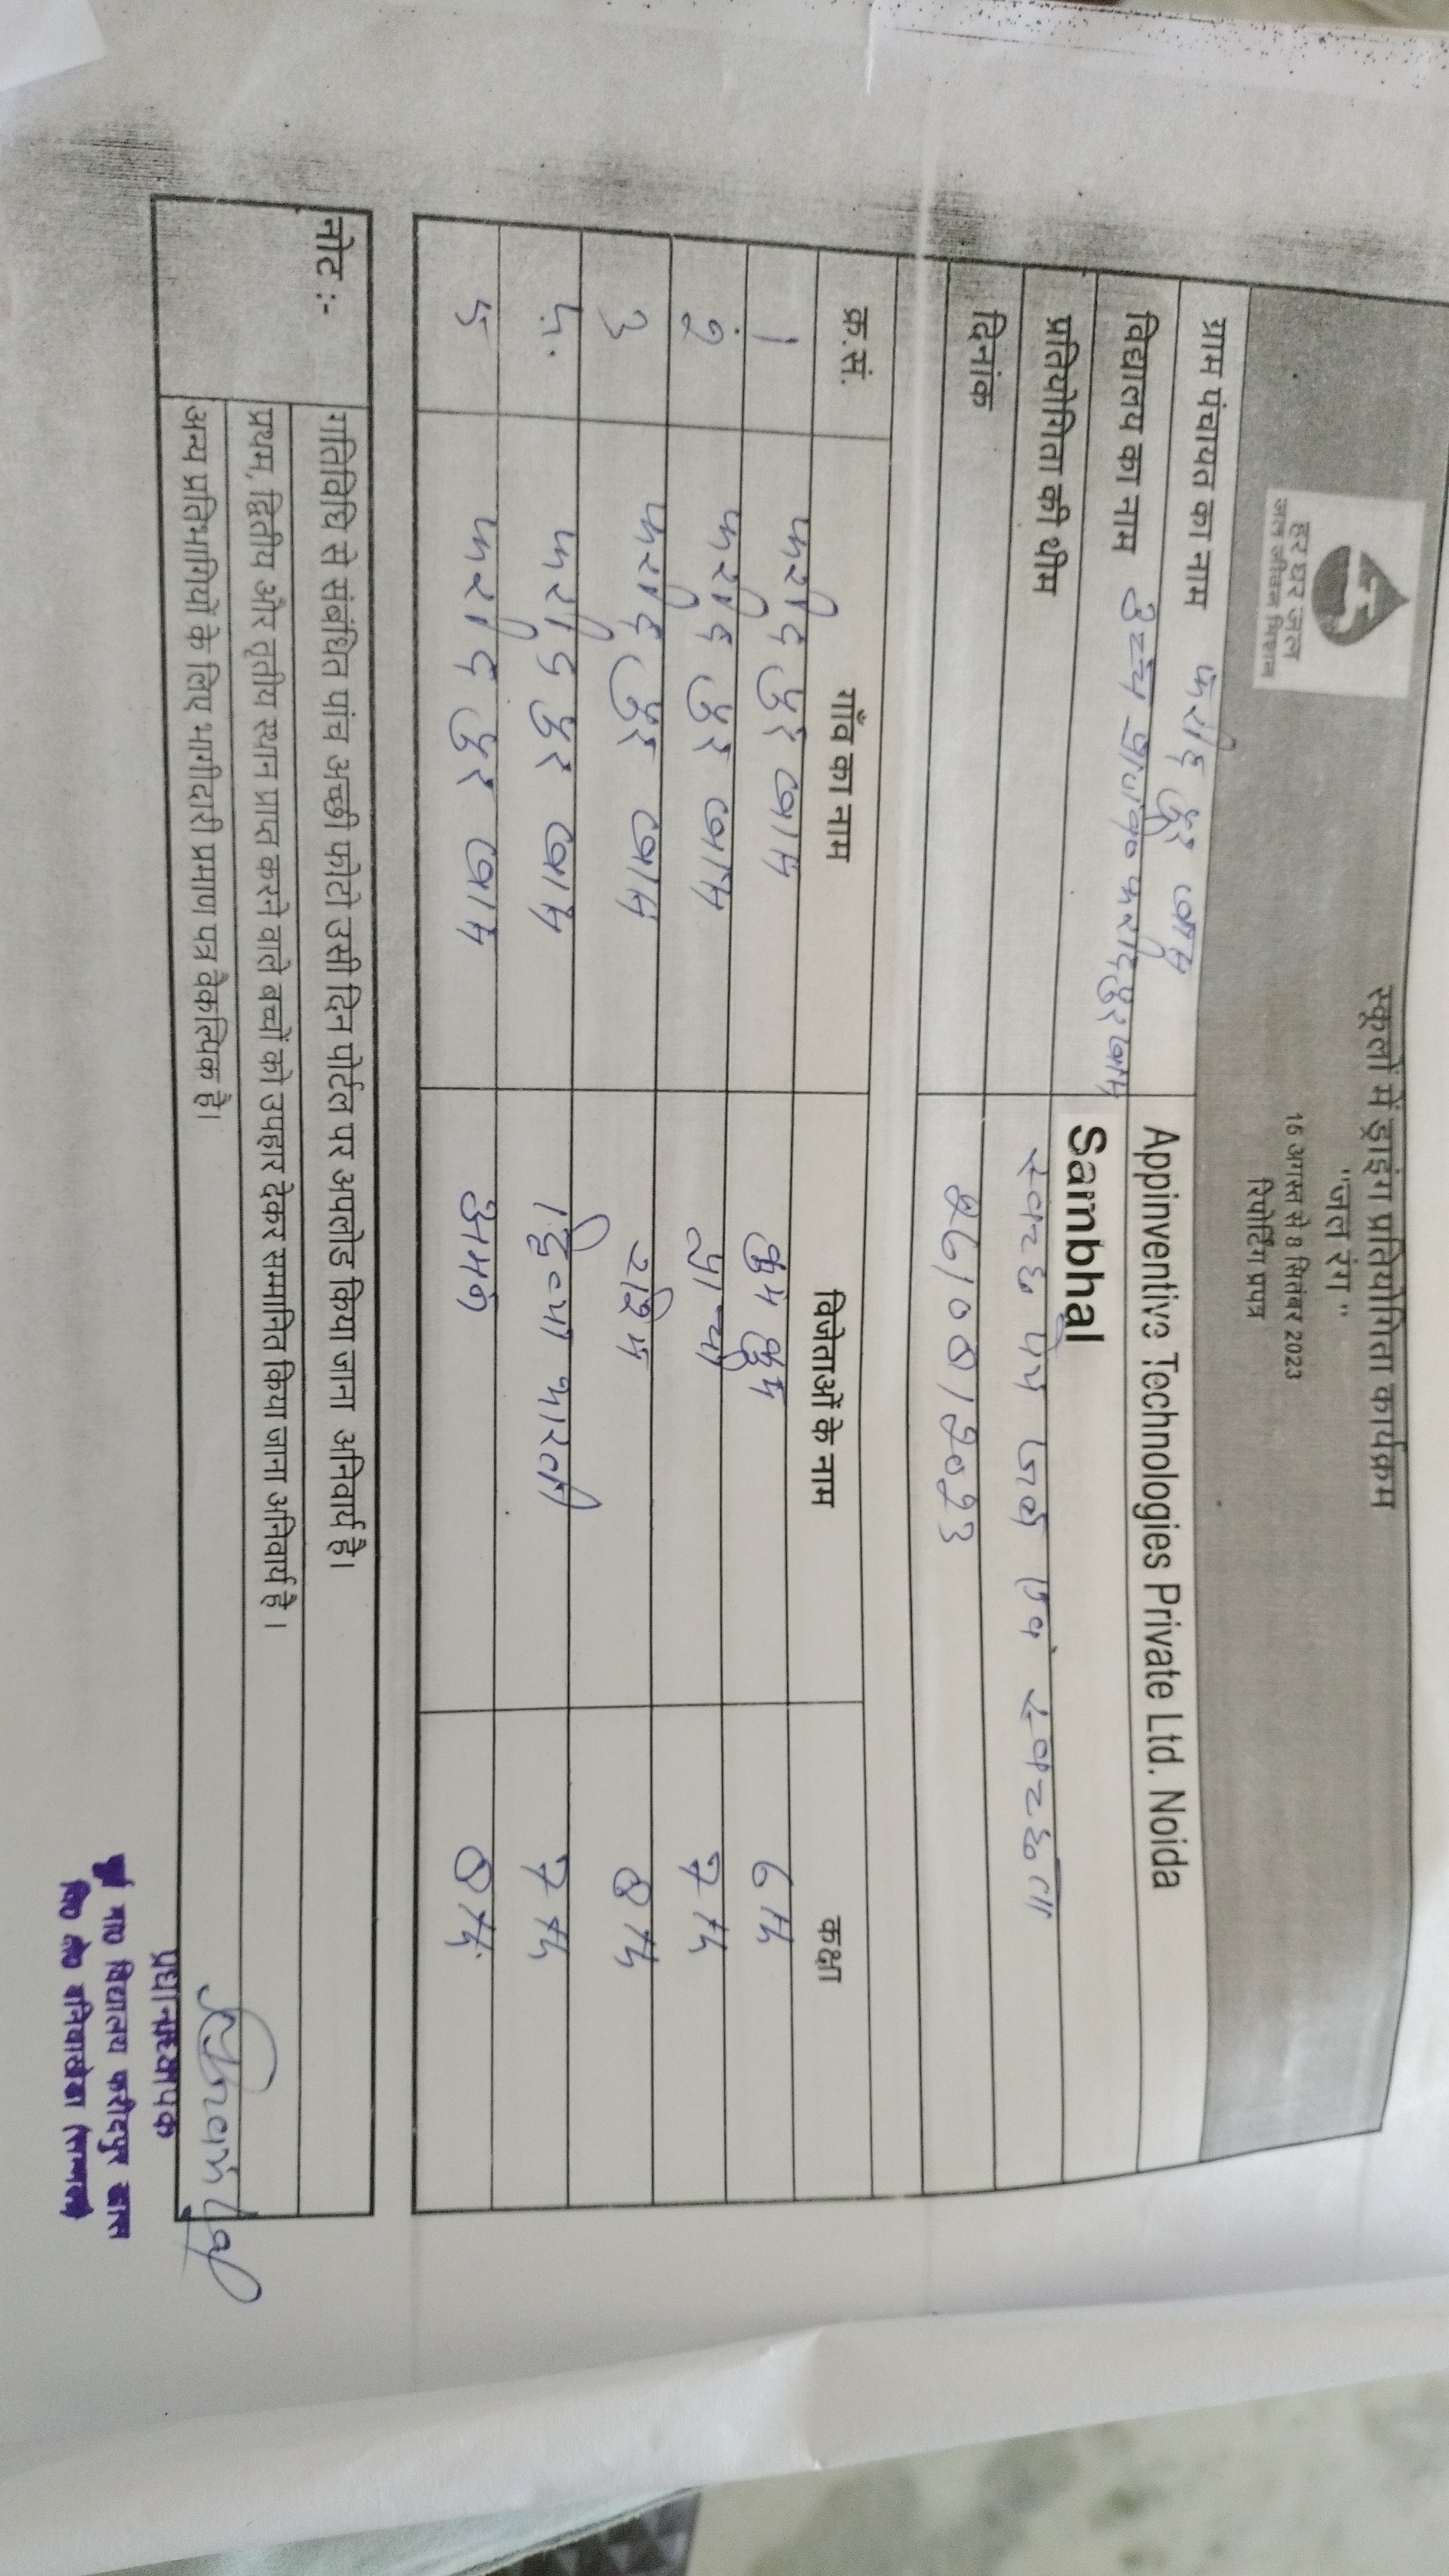 स्कूलों में ड्राइंग प्रतियोगिता कार्यक्रम
"जल रंग"
16 अगस्त से 8 सितंबर 2023
रिपोर्टिंग प्रपत्र
हर घर जल
जल जीवन मिशन
ग्राम पंचायत का नाम फरीदपुर खास Appinventive Technologies Private Ltd. Noida
विद्यालय का नाम उच्च प्रा०वि० फरीदपुर खास Sambhal
प्रतियोगिता की थीम स्वच्छ पेय जल एवं स्वच्छता
दिनांक /08/2023
क्र.सं. गाँव का नाम विजेताओं के नाम कक्षा
1 फरीदपुर खास कुमकुम 6th
2 फरीदपुर खास प्राची 7th
3 फरीदपुर खास 8th
4. फरीदपुर खास भारती 7th
5 फरीदपुर खास 8th
नोट :- गतिविधि से संबंधित पांच अच्छी फोटो उसी दिन पोर्टल पर अपलोड किया जाना अनिवार्य है।
प्रथम, द्वितीय और तृतीय स्थान प्राप्त करने वाले बच्चों को उपहार देकर सम्मानित किया जाना अनिवार्य है।
अन्य प्रतिभागियों के लिए भागीदारी प्रमाण पत्र वैकल्पिक है।
प्रधानाध्यापक
पूर्व मा० विद्यालय फरीदपुर खास
वि० क्षे० बनियाखेडा (सम्भल)